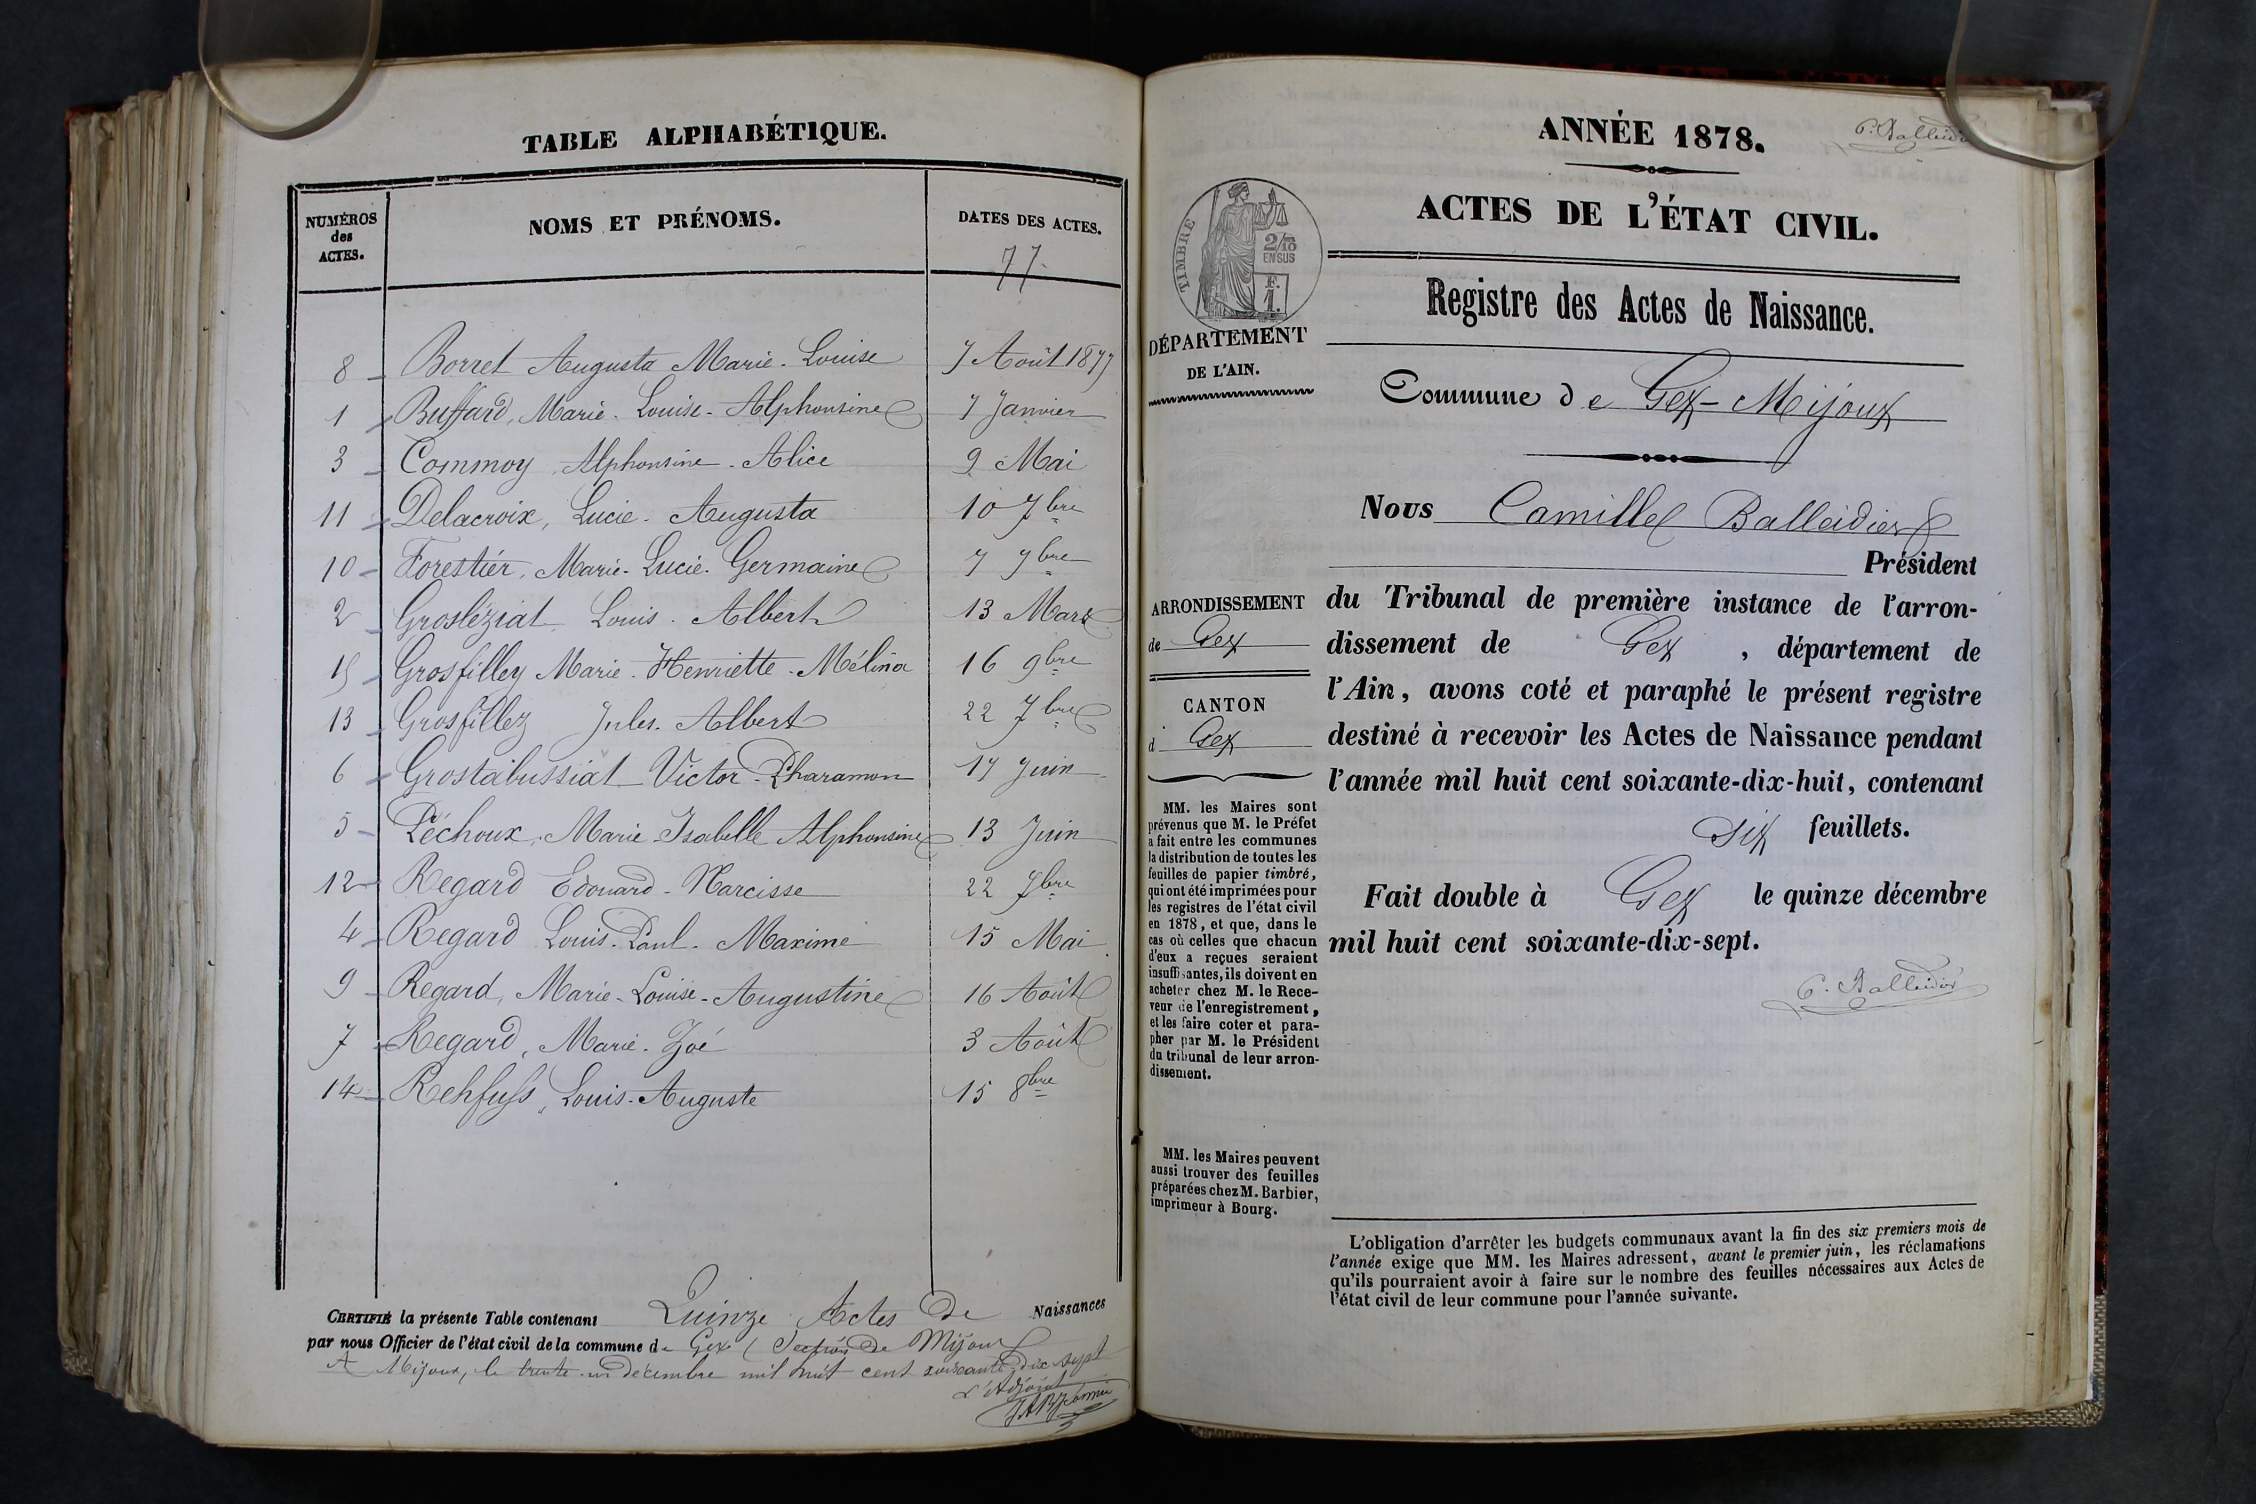 TABLE ALPHABÉTIQUE.
NUMÉROS des ACTES. NOMS ET PRÉNOMS. DATES DES ACTES.
77
8 Borret Augusta Marie-Louise 7 Août 1877
1 Buffard, Marie-Louise-Alphonsine 7 Janvier
3 Commoy, Alphonsine-Alice 9 Mai
11 Delacroix, Lucie-Augusta 10 7bre
10 Forestier, Marie-Lucie-Germaine 7 7bre
2 Grosléziat Louis-Albert 13 Mars
15 Grosfilley Marie-Henriette-Mélina 16 9bre
13 Grosfillez Jules-Albert 22 7bre
6 Grostabussiat Victor-Pharamon 17 Juin
5 Péchoux, Marie-Isabelle Alphonsine 13 Juin
12 Regard Edouard-Narcisse 22 7bre
4 Regard Louis-Paul-Maxime 15 Mai
9 Regard, Marie-Louise-Augustine 16 Août
7 Regard, Marie-Zoé 3 Août
14 Rehfuss, Louis-Auguste 15 8bre
CERTIFIÉ la présente Table contenant Quinze Actes de Naissances
par nous Officier de l'état civil de la commune de Gex (Section de Mijoux)
A Mijoux, le trente-un décembre mil huit cent soixante-dix sept
L'Adjoint
ANNÉE 1878.
C. Balleidier
ACTES DE L'ÉTAT CIVIL.
TIMBRE
2/10
EN SUS
F.
1.
Registre des Actes de Naissance.
DÉPARTEMENT
DE L'AIN.
Commune de Gex-Mijoux
Nous Camille Balleidier
Président
du Tribunal de première instance de l'arron-
dissement de Gex, département de
l'Ain, avons coté et paraphé le présent registre
destiné à recevoir les Actes de Naissance pendant
l'année mil huit cent soixante-dix-huit, contenant
six feuillets.
Fait double à Gex le quinze décembre
mil huit cent soixante-dix-sept.
C. Balleidier
ARRONDISSEMENT
de Gex
CANTON
d Gex
MM. les Maires sont
prévenus que M. le Préfet
a fait entre les communes
la distribution de toutes les
feuilles de papier timbré,
qui ont été imprimées pour
les registres de l'état civil
en 1878, et que, dans le
cas où celles que chacun
d'eux a reçues seraient
insuffisantes, ils doivent en
acheter chez M. le Rece-
veur de l'enregistrement,
et les faire coter et para-
pher par M. le Président
du tribunal de leur arron-
dissement.
MM. les Maires peuvent
aussi trouver des feuilles
préparées chez M. Barbier,
imprimeur à Bourg.
L'obligation d'arrêter les budgets communaux avant la fin des six premiers mois de
l'année exige que MM. les Maires adressent, avant le premier juin, les réclamations
qu'ils pourraient avoir à faire sur le nombre des feuilles nécessaires aux Actes de
l'état civil de leur commune pour l'année suivante.